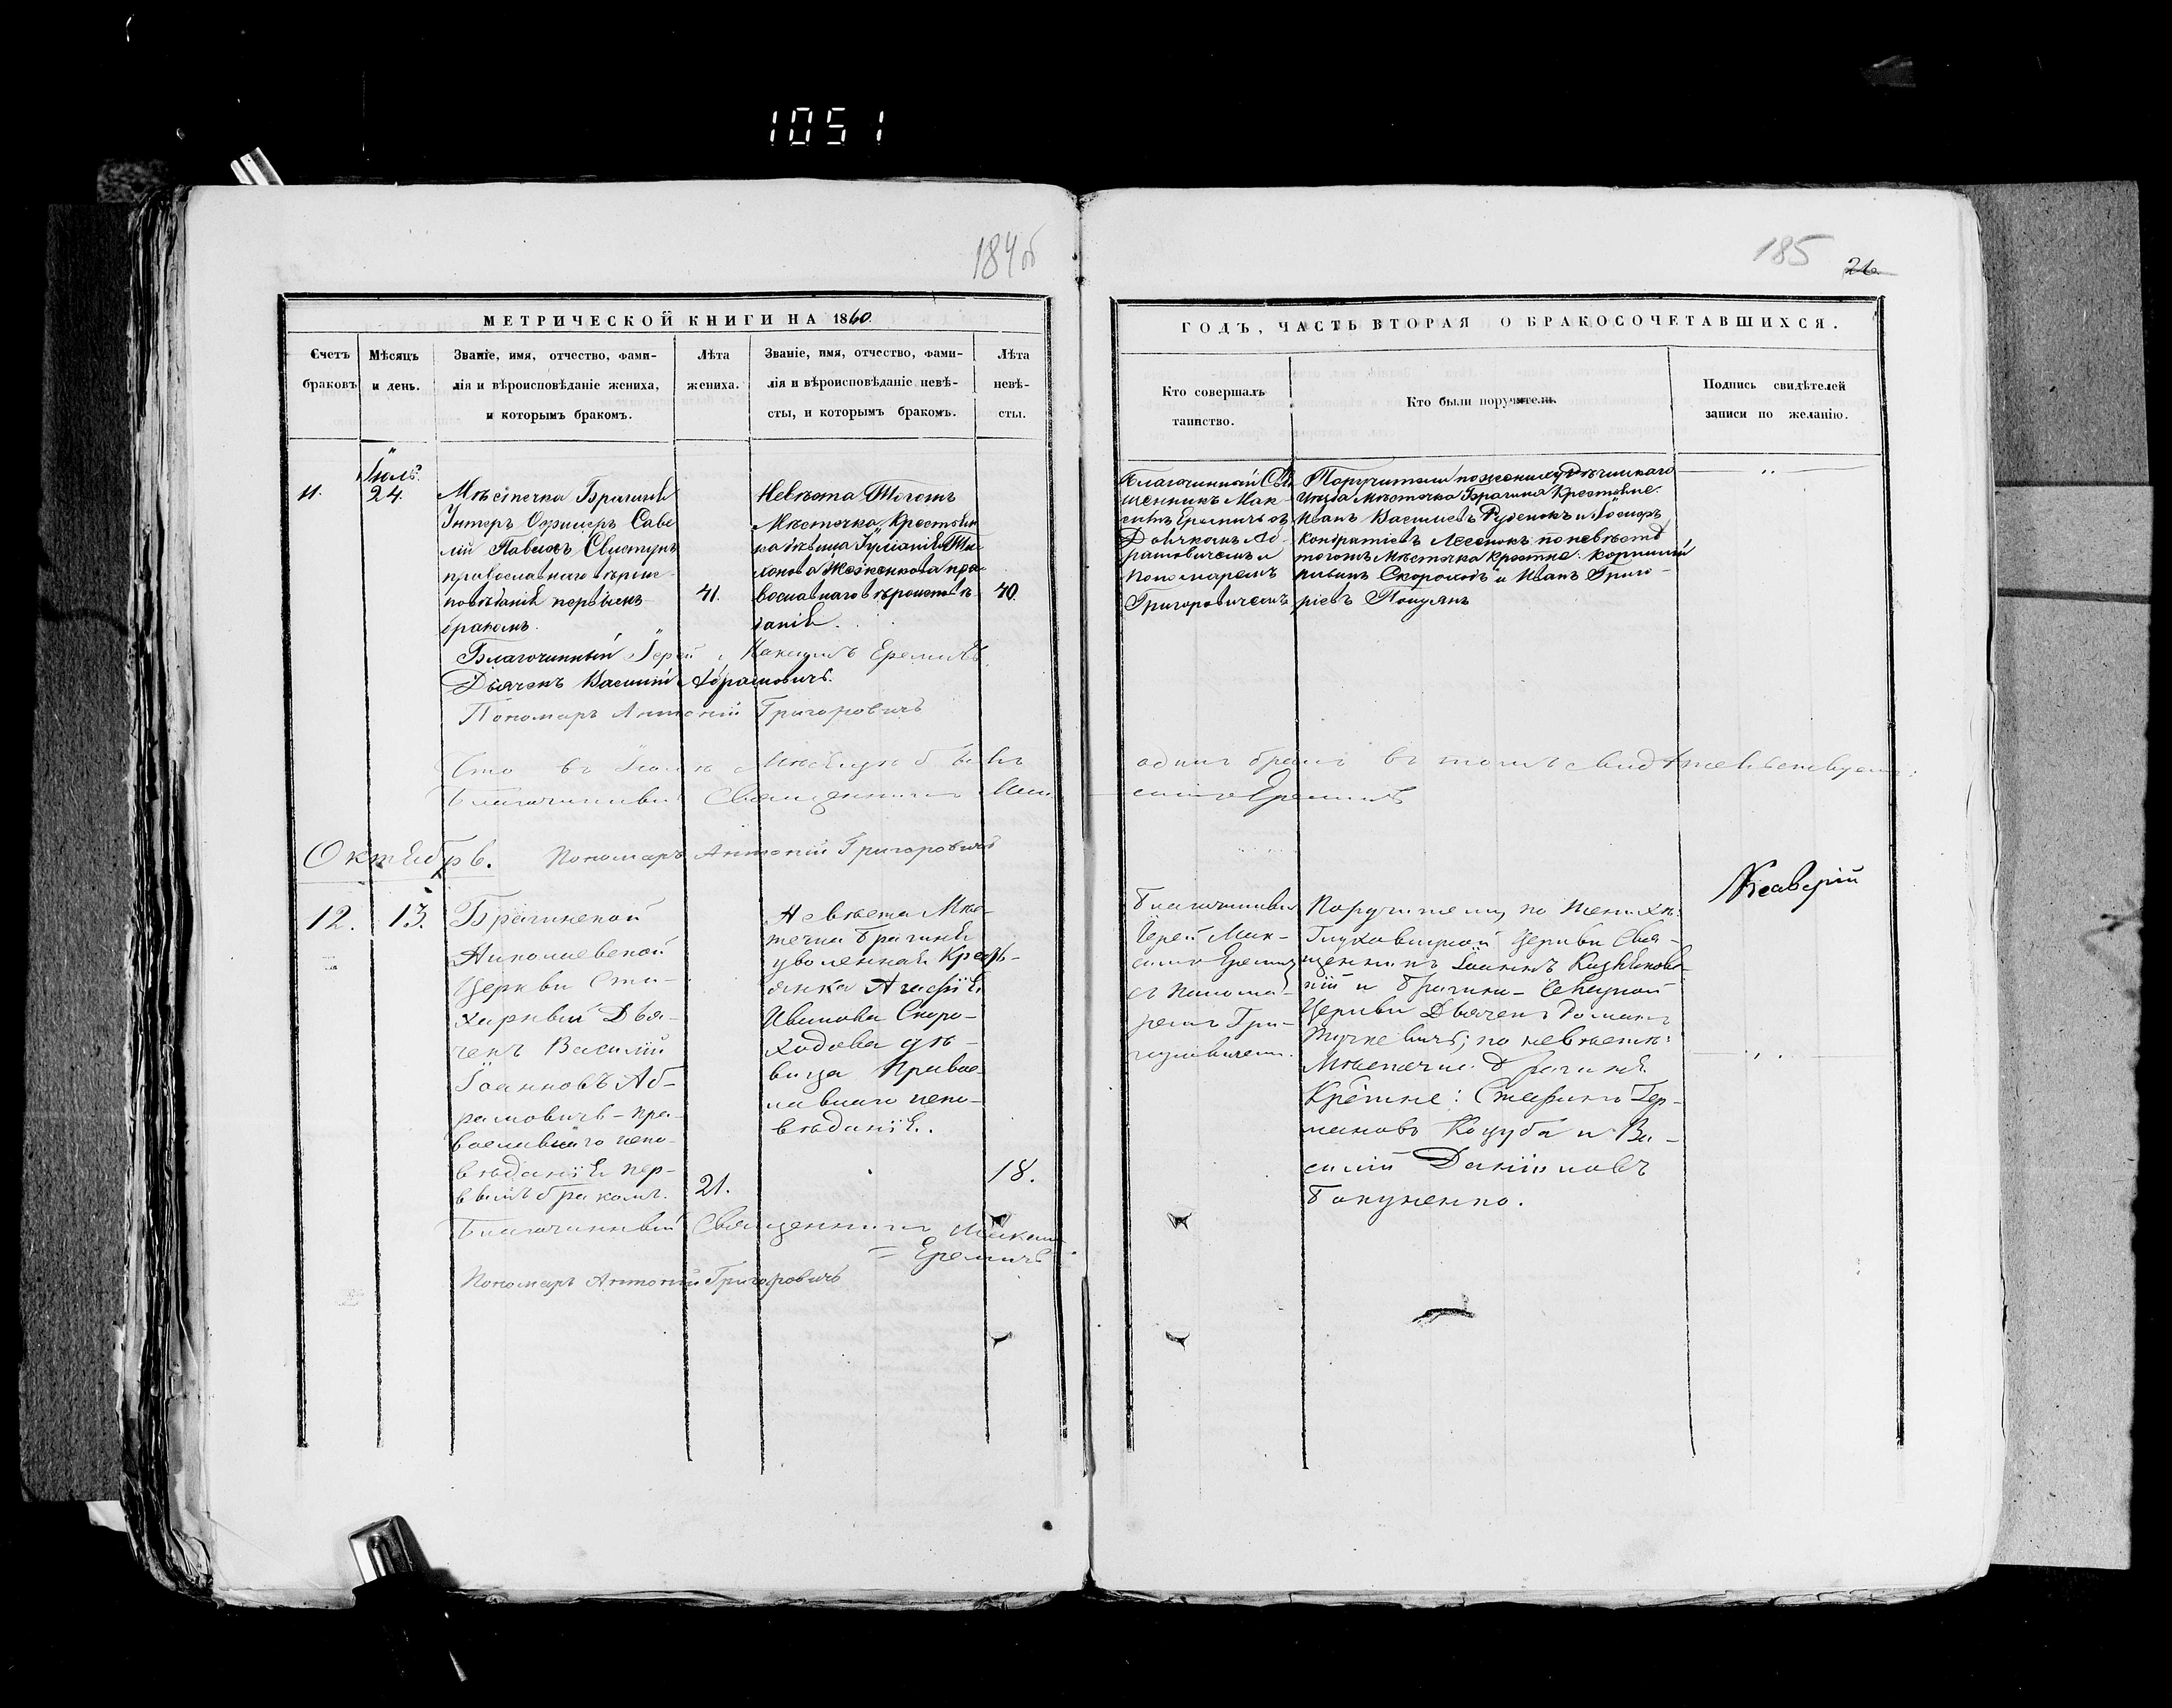 1051
184 об
185
26.
МЕТРИЧЕСКОЙ КНИГИ НА 1860.
ГОДЪ, ЧАСТЬ ВТОРАЯ О БРАКОСОЧЕТАВШИХСЯ.
Счетъ
браковъ
Мѣсяцъ
и день.
Званіе, имя, отчество, фами-
лія и вѣроисповѣданіе жениха,
и которымъ бракомъ.
Лѣта
жениха.
Званіе, имя, отчество, фами-
лія и вѣроисповѣданіе невѣ-
сты, и которымъ бракомъ.
Лѣта
невѣ-
сты.
Кто совершалъ
таинство.
Кто были поручители.
Подпись свидѣтелей
записи по желанію.
11.
Іюль
24.
Мѣстечка Брагиня
Унтеръ Офицеръ Саве
лій Павловъ Свистунъ
православнаго вѣроис
повѣданія первымъ
бракомъ.
41.
Невѣста Тогожъ
Мѣстечка Крестьян
ка дѣвица Іуліанія
пра
вославнаго вѣроисповѣ
данія.
40.
Благочинный Свя
щенникъ Мак
симъ Еремичъ съ
Дьячкомъ Аб
рамовичемъ и
Пономаремъ
Григоровичемъ
Поручители по женихѣ Рѣчицкаго
уезда Мѣстечка Брагина Крестьяне
Иванъ Васильевъ Руденокъ и
Кондратіевъ Лесенокъ по невѣстѣ
тогожъ Мѣстечка Крестьяне
Скороходъ и Иванъ Григо-
ріевъ
Благочинный Іерей Максимъ Еремичъ
Дьячекъ Василій Абрамовичъ.
Пономарь Антоній Григоровичъ
Что въ Іюлѣ Мѣсяцѣ былъ одинъ бракъ въ томъ свидѣтельствуемъ:
Благочинный Священникъ Максимъ Еремичъ
Пономарь Антоній Григоровичъ
Октябрь.
12.
13.
Брагинской
Николаевской
Церкви Сти-
харный Дья-
чекъ Василій
Іоанновъ Аб-
рамовичъ - пра-
вославнаго испо-
вѣданія пер-
вымъ бракомъ.
21.
Невѣста Мѣс-
течка Брагиня
уволенная Кресть-
янка Агафія
Иванова Скоро-
ходова дѣ-
вица Правос-
лавнаго испо-
вѣданія.
18.
Благочинный
Іерей Мак-
симъ Еремичъ
съ Понома-
ремъ Гри-
горовичемъ.
Поручители по женихѣ:
Глуховицкой Церкви Свя-
щенникъ Іоаннъ
и Брагино-Селецкой
Церкви Дьячекъ
по невѣстѣ:
Мѣстечка Брагиня
Крестьяне: Стефанъ Гер-
мановъ Коцуба и Ва-
силій Даніиловъ
Бакуненко.
Ксаверій
Благочинный Священникъ Максимъ
Еремичъ
Пономарь Антоній Григоровичъ